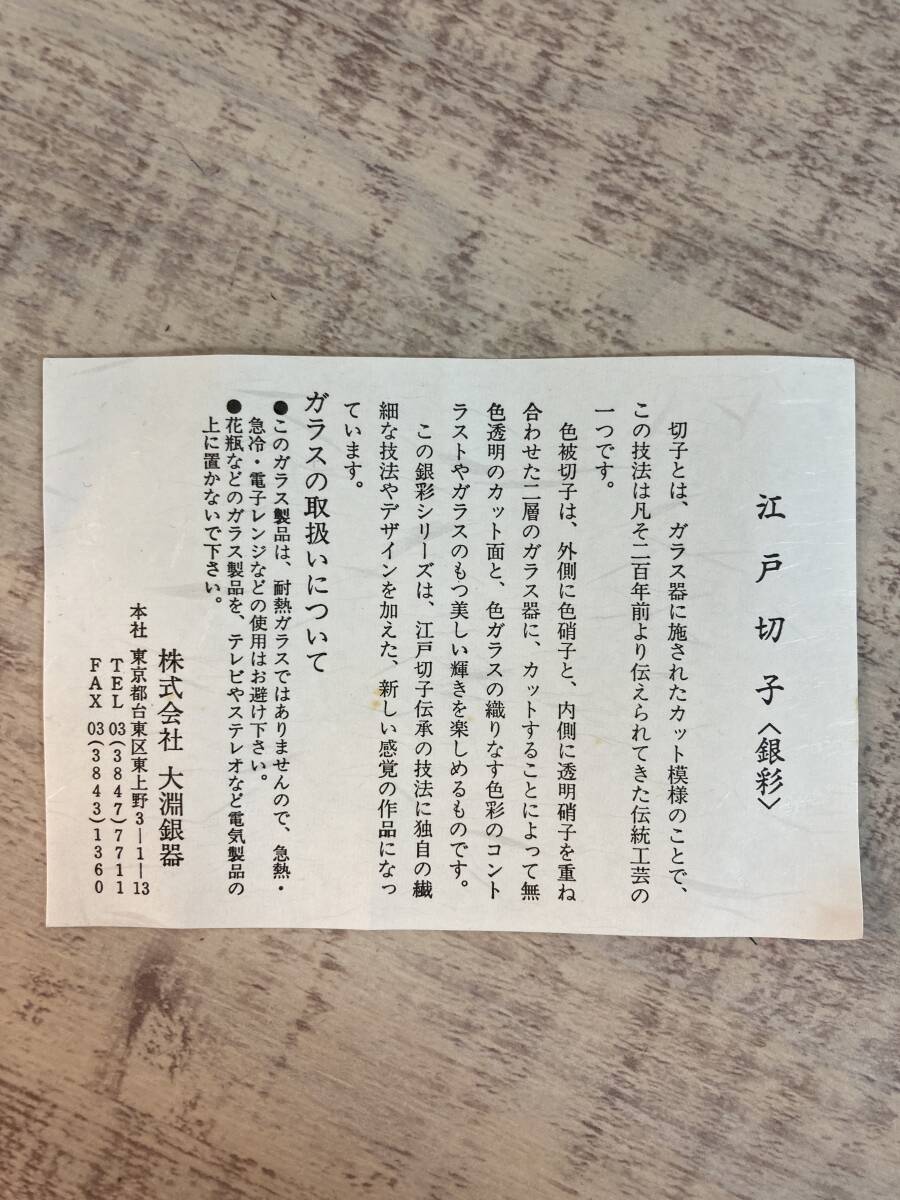 江戸切子〈銀彩〉
切子とは、ガラス器に施されたカット模様のことで、
この技法は凡そ二百年前より伝えられてきた伝統工芸の
一つです。
色被切子は、外側に色硝子と、内側に透明硝子を重ね
合わせた二層のガラス器に、カットすることによって無
色透明のカット面と、色ガラスの織りなす色彩のコント
ラストやガラスのもつ美しい輝きを楽しめるものです。
この銀彩シリーズは、江戸切子伝承の技法に独自の繊
細な技法やデザインを加えた、新しい感覚の作品になっ
ています。
ガラスの取扱いについて
●このガラス製品は、耐熱ガラスではありませんので、急熱・
急冷・電子レンジなどの使用はお避け下さい。
●花瓶などのガラス製品を、テレビやステレオなど電気製品の
上に置かないで下さい。
株式会社 大淵銀器
本社 東京都台東区東上野3―1―13
TEL 03(3847)7711
FAX 03(3843)1360